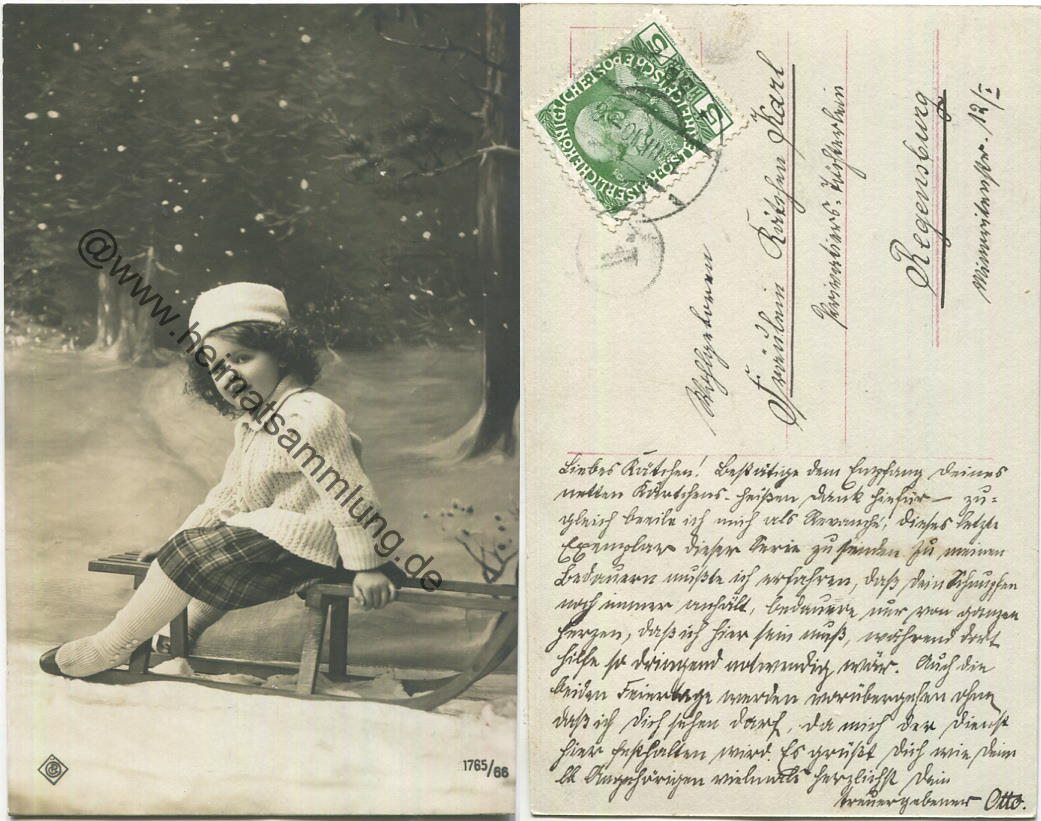 @www.heimatsammlung.de
1765/66
5 5
KAISERLICHE KÖNIGLICHE ÖSTERREICHISCHE POST
T.
Wohlgeboren
Fräulein Kätchen Karl
Privatiers-Töchterlein
Regensburg
Minoritenstr. 12/I
Liebes Kätchen! Bestätige dem Empfang Deines
netten Kärtchens - heißen Dank hiefür - zu-
gleich beeile ich mich als Revanche, dieses letzte
Exemplar dieser Serie zu senden. Zu meinem
Bedauern mußte ich erfahren, daß Dein Schnupfen
noch immer anhält, bedauere nur von ganzem
Herzen, daß ich hier sein muß, während dort
Hilfe so dringend notwendig wär. Auch die
beiden Feiertage werden vorübergehen ohne
daß ich Dich sehen darf, da mich der Dienst
hier festhalten wird. Es grüßt Dich wie Dein
lb. Angehörigen vielmals herzlichst Dein
treuergebener Otto.